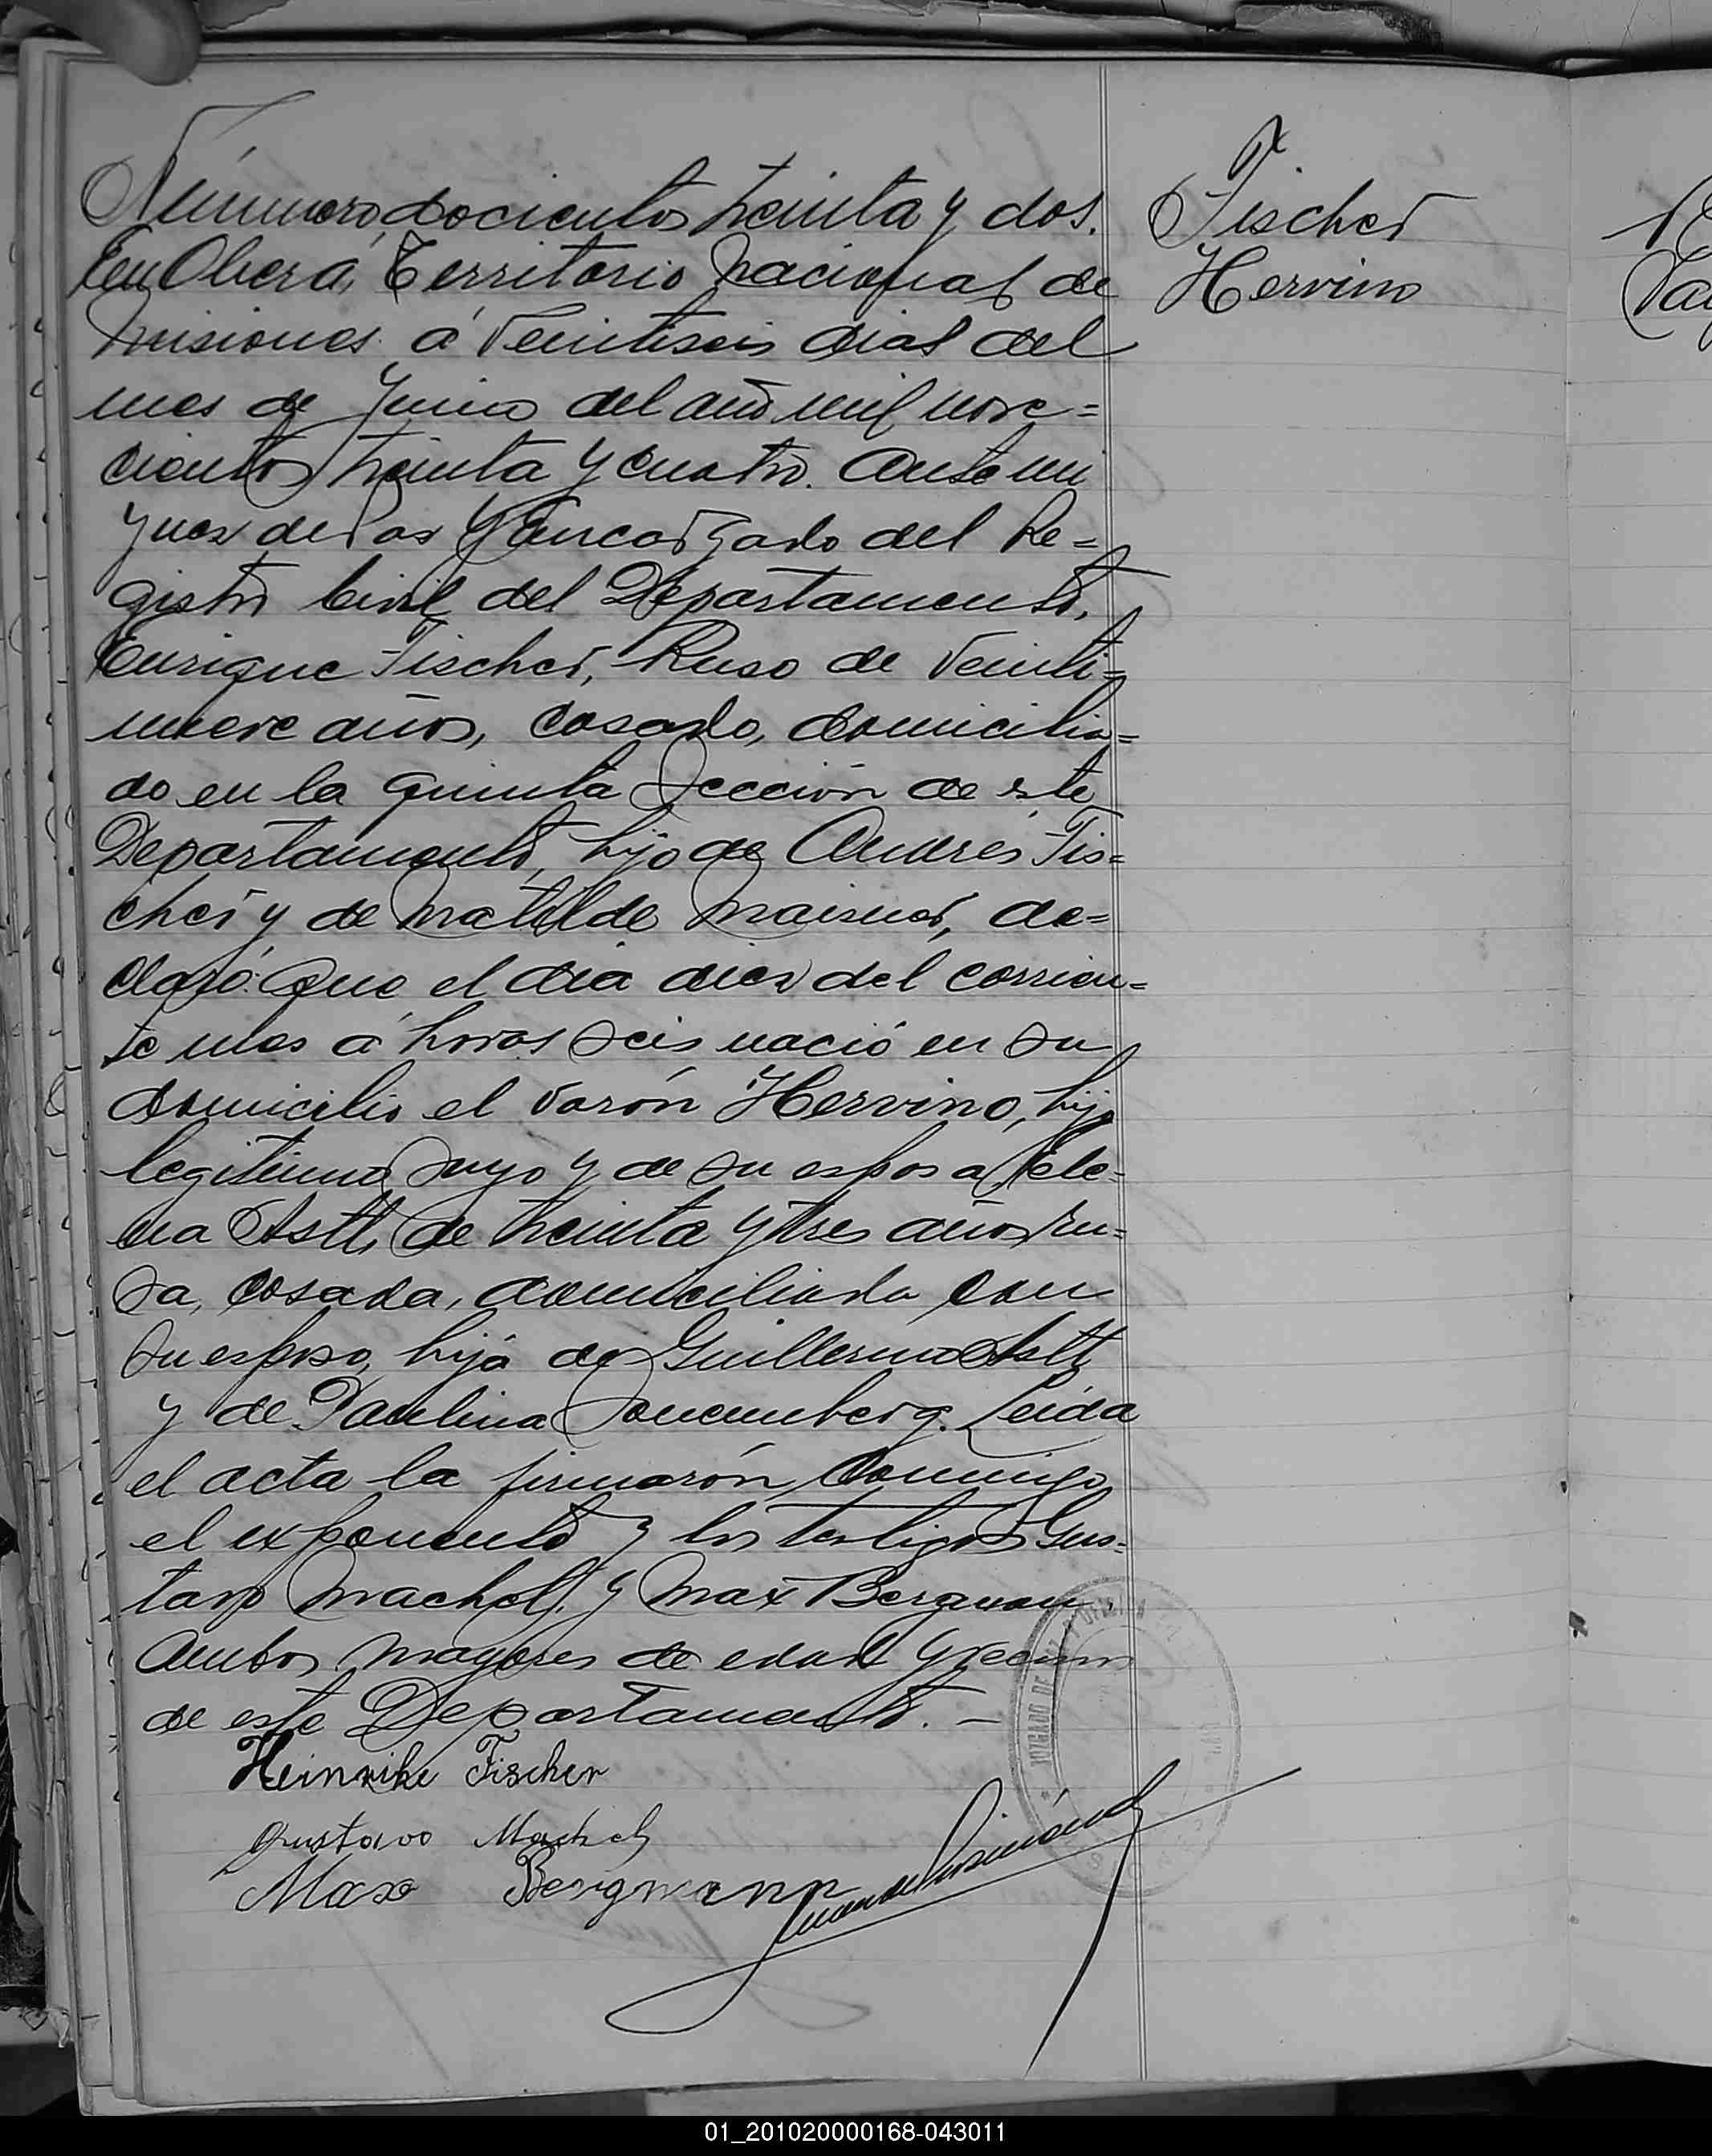 Número docientos treinta y dos.
En Oberá, Territorio Nacional de
Misiones á veintiseis dias del
mes de Junio del año mil nove=
cientos treinta y cuatro. Ante mi
Juez de Paz y Encargado del Re=
gistro Civil del Departamento,
Enrique Fischer, Ruso de veinti=
nueve años, casado, domicilia=
do en la quinta Sección de este
Departamento, hijo de Andrés Fis=
cher y de Matilde de=
claró: Que el dia diez del corrien=
te mes á horas seis nació en su
domicilio el varón Hervino, hijo
legitimo suyo y de su esposa Ele=
na de treinta y tres años, ru=
sa, casada, domiciliada con
su esposo, hija de Guillermo
y de Paulina Sonnemberg. Leida
el acta la firmarón conmigo
el exponente y los testigos Gus=
tavo Macholf y Max Bergman
ambos mayores de edad y vecinos
de este Departamento. —
Heinrike Fischer
Gustavo
Max Bergmann
Fischer
Hervino
JUZGADO DE PAZ
01_201020000168-043011